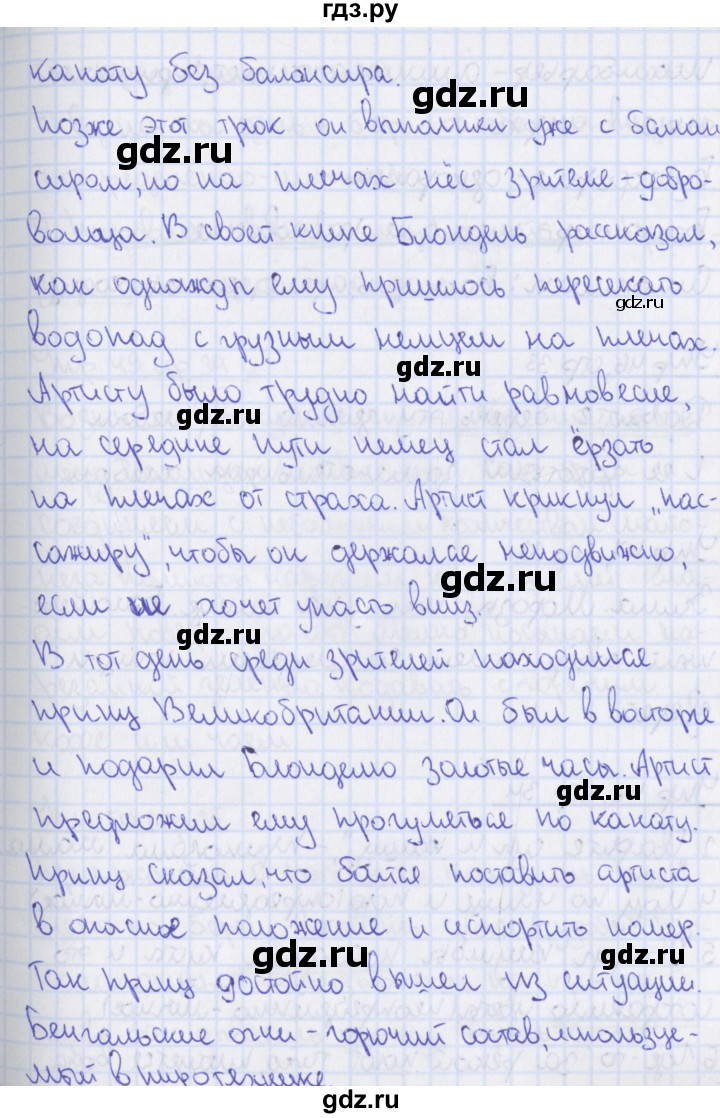 гдз.ру
канату без балансира.
gdz.ru
Позже этот трюк он выполнял уже с балан
gdz.ru
сиром, но на плечах нёс зрителя-добро-
вольца. В своей книге Блондель рассказал,
как однажды ему пришлось пересекать
gdz.ru
водопад с грузным немцем на плечах.
gdz.ru
Артисту было трудно найти равновесие,
gdz.ru
на середине пути немец стал ёрзать
на плечах от страха. Артист крикнул „пас-
gdz.ru
сажиру", чтобы он держался неподвижно,
gdz.ru
если не хочет упасть вниз.
gdz.ru
В тот день среди зрителей находился
принц Великобритании. Он был в восторге
и подарил Блонделю золотые часы. Артист
gdz.ru
предложил ему прогуляться по канату.
gdz.ru
Принц сказал, что боится поставить артиста
в опасное положение и испортить номер.
gdz.ru
gdz.ru
Так принц достойно вышел из ситуации.
Бенгальские огни - горючий состав, используе-
мый в пиротехнике
gdz.ru
гдз.ру